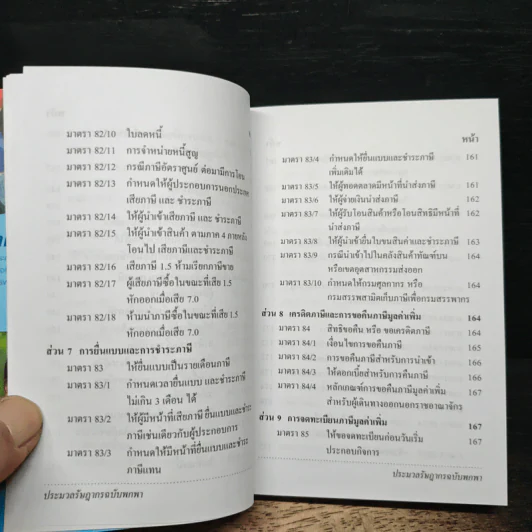 มาตรา 82/10 ใบลดหนี้
มาตรา 82/11 การจำหน่ายหนี้สูญ
มาตรา 82/12 กรณีภาษีอัตราศูนย์ ต่อมามีการโอน
มาตรา 82/13 กำหนดให้ผู้ประกอบการนอกประเทศ
เสียภาษี และ ชำระภาษี
มาตรา 82/14 ให้ผู้นำเข้าเสียภาษี และ ชำระภาษี
มาตรา 82/15 ให้ผู้นำเข้าสินค้า ตามภาค 4 ภายหลัง
โอนไป เสียภาษีและชำระภาษี
มาตรา 82/16 เสียภาษี 1.5 ห้ามเรียกภาษีขาย
มาตรา 82/17 ผู้เสียภาษีในขณะที่เสีย 1.5
หักออกเมื่อเสีย 7.0
มาตรา 82/18 ห้ามนำภาษีซื้อในขณะที่เสีย 1.5
หักออกเมื่อเสีย 7.0
ส่วน 7 การยื่นแบบและการชำระภาษี
มาตรา 83 ให้ยื่นแบบเป็นรายเดือนภาษี
มาตรา 83/1 กำหนดเวลายื่นแบบ และ ชำระภาษี
ไม่เกิน 3 เดือน ได้
มาตรา 83/2 ให้ผู้มีหน้าที่เสียภาษี ยื่นแบบและชำระ
ภาษีเช่นเดียวกับผู้ประกอบการ
มาตรา 83/3 กำหนดให้มีหน้าที่ยื่นแบบและชำระ
ภาษีแทน
ประมวลรัษฎากรฉบับพกพา
หน้า
มาตรา 83/4 กำหนดให้ยื่นแบบและชำระภาษี 161
เพิ่มเติมได้
มาตรา 83/5 ให้ผู้ทอดตลาดมีหน้าที่นำส่งภาษี 161
มาตรา 83/6 ให้ผู้จ่ายเงินนำส่งภาษี 162
มาตรา 83/7 ให้ผู้รับโอนสินค้าหรือโอนสิทธิมีหน้าที่ 162
นำส่งภาษี
มาตรา 83/8 ให้ผู้นำเข้ายื่นใบขนสินค้าและชำระภาษี 163
มาตรา 83/9 กรณีนำเข้าไปในคลังสินค้าทัณฑ์บน 164
หรือเขตอุตสาหกรรมส่งออก
มาตรา 83/10 กำหนดให้กรมศุลกากร หรือ 164
กรมสรรพสามิตเก็บภาษีเพื่อกรมสรรพากร
ส่วน 8 เครดิตภาษีและการขอคืนภาษีมูลค่าเพิ่ม 164
มาตรา 84 สิทธิขอคืน หรือ ขอเครดิตภาษี 164
มาตรา 84/1 เงื่อนไขการขอคืนภาษี 165
มาตรา 84/2 การขอคืนภาษีสำหรับการนำเข้า 166
มาตรา 84/3 ให้ดอกเบี้ยสำหรับการคืนภาษี 166
มาตรา 84/4 หลักเกณฑ์การขอคืนภาษีมูลค่าเพิ่ม 166
สำหรับผู้เดินทางออกนอกราชอาณาจักร
ส่วน 9 การจดทะเบียนภาษีมูลค่าเพิ่ม 167
มาตรา 85 ให้ขอจดทะเบียนก่อนวันเริ่ม 167
ประกอบกิจการ
ประมวลรัษฎากรฉบับพกพา